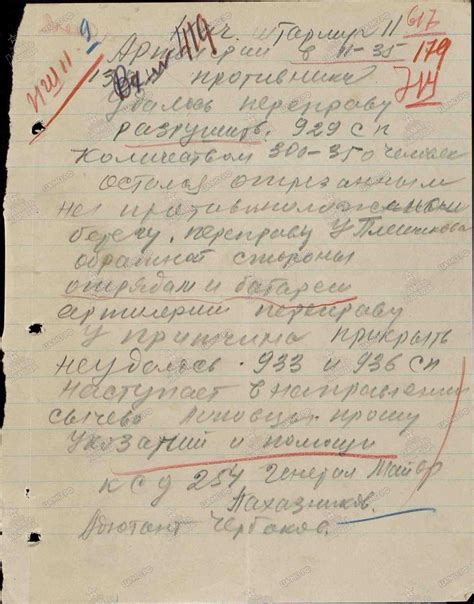 617
179
719
НШ 11 9
419
Артилерии в 11-35
противника
удалось переправу
разрушить. 929 сп
количеством 300-350 человек
остался отрезанным
на противоположном
берегу. переправу у
обратной стороны
отрядам и батареи
артилерии переправу
у прикрыть
неудалось. 933 и 936 сп
наступает в направлении
сычево прошу
Указаний и помощи
КСД 254 Генерал Майор
Адютант